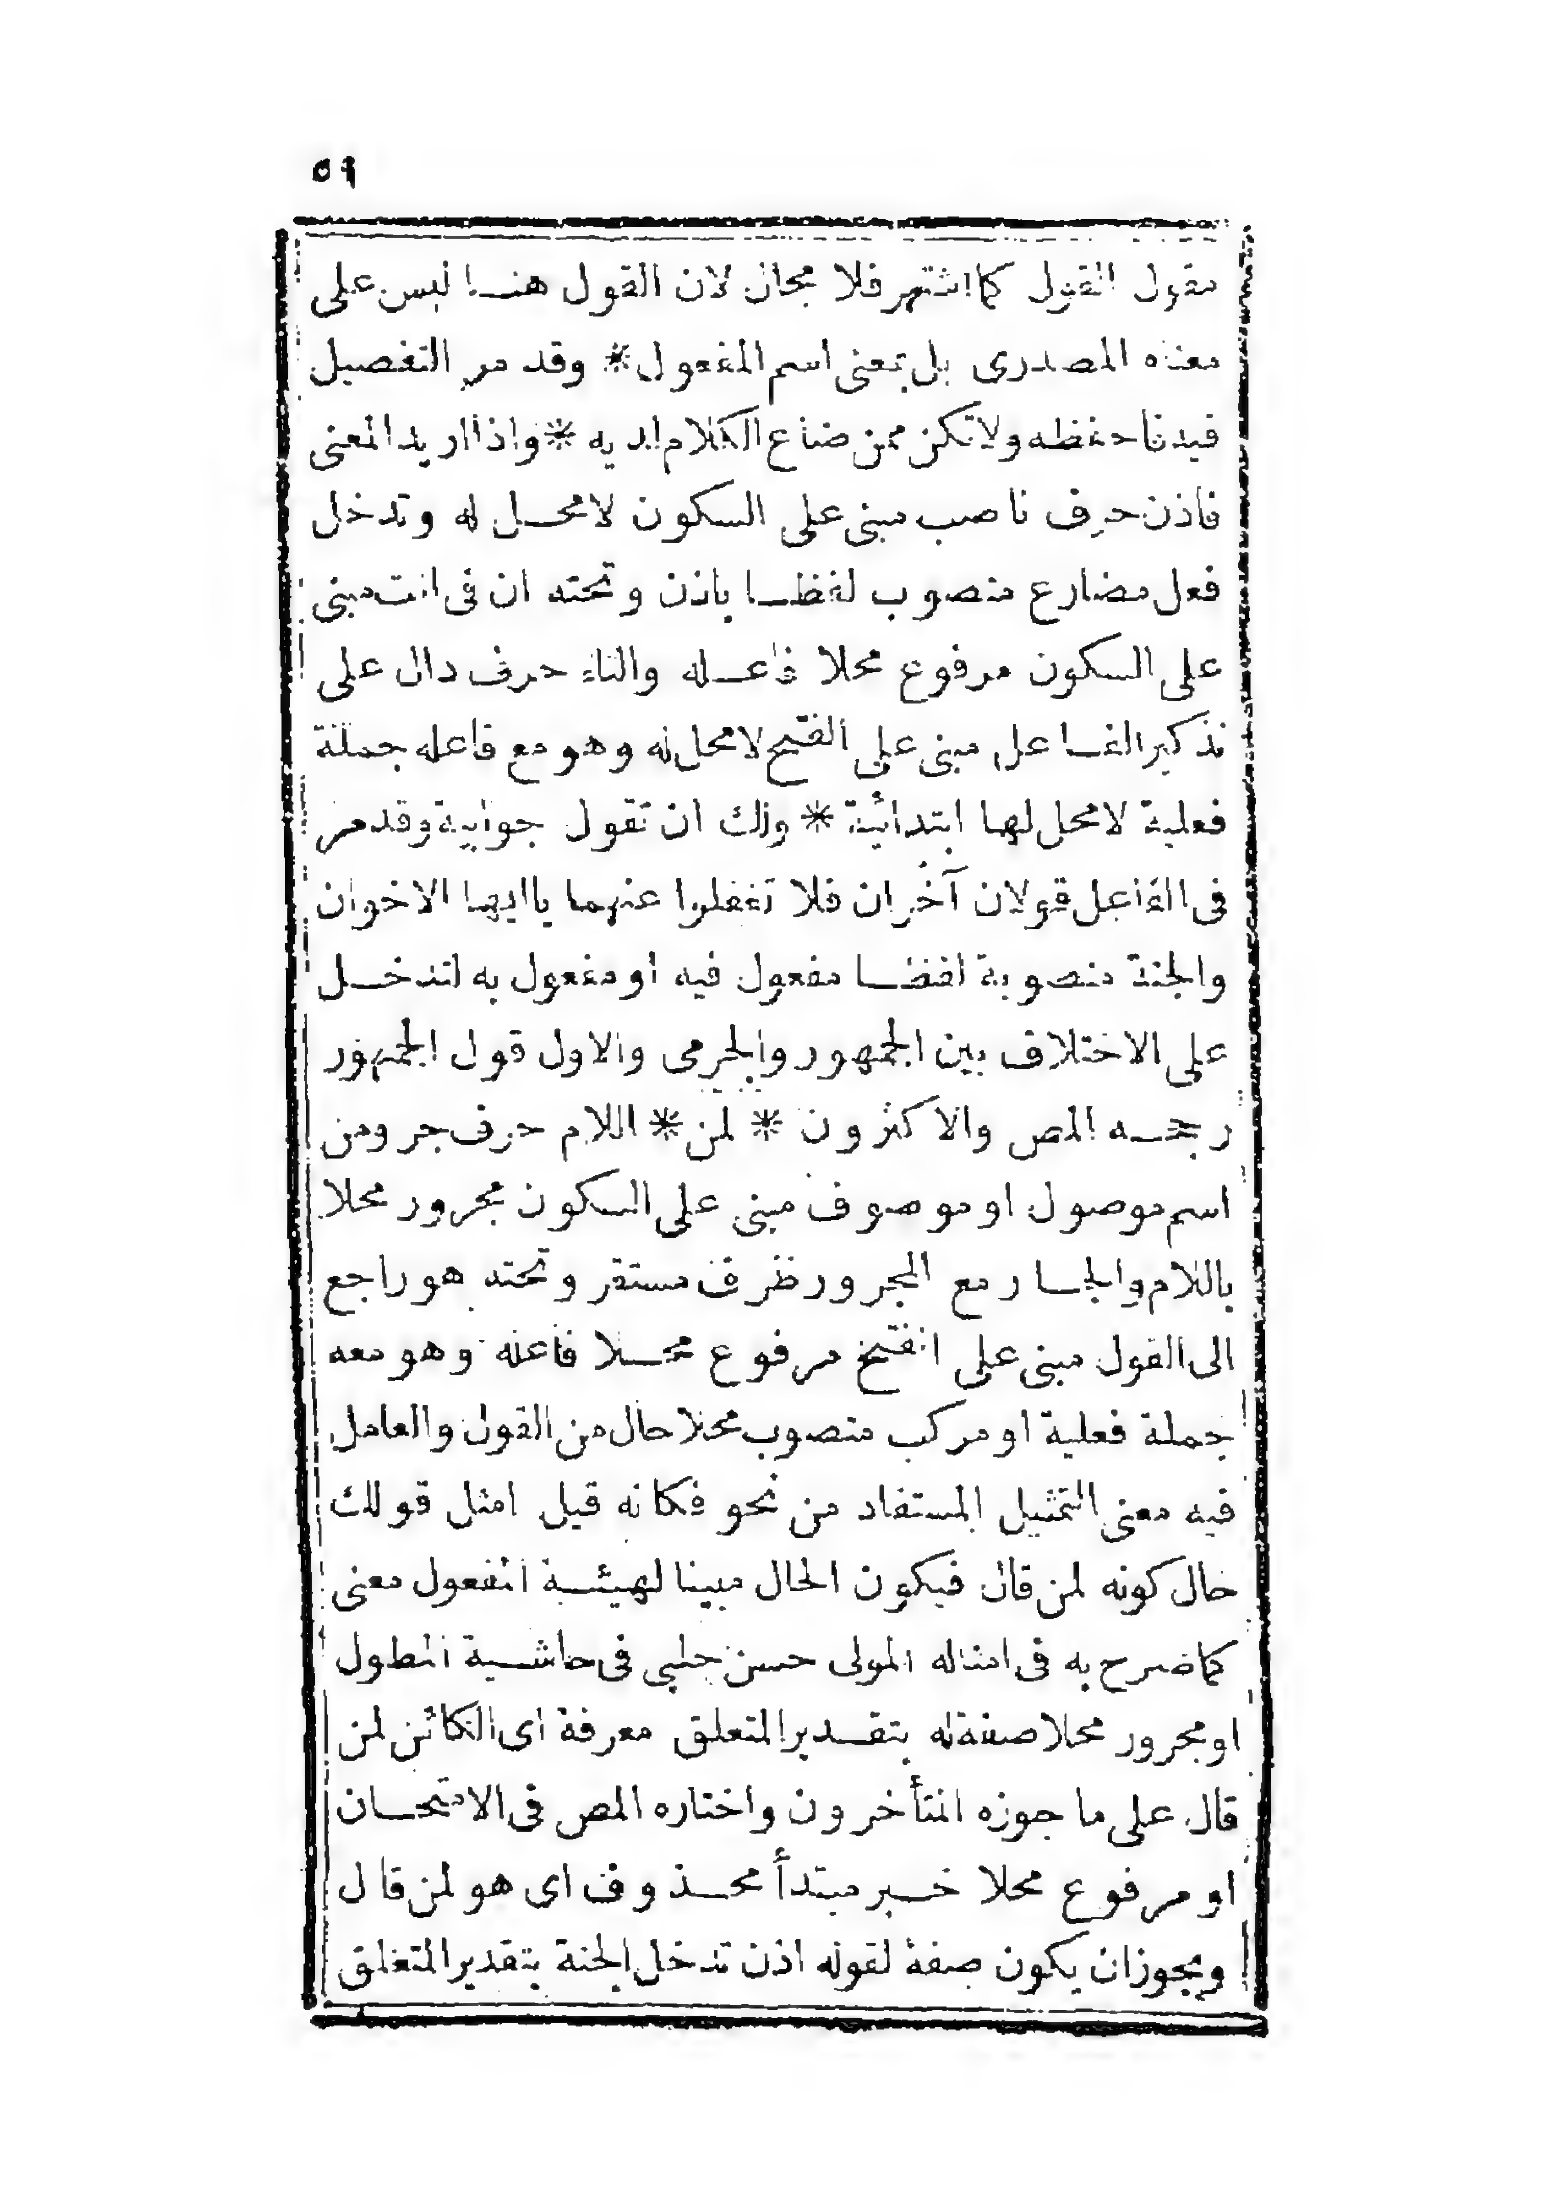 ٥٩
مقول القول كما اشتهر فلا مجال لان القول هنا ليس على
معناه المصدرى بل بمعنى اسم المفعول * وقد مر التفصيل
فيه فاحفظه ولا تكن ممن ضاع الكلام لديه * واذا اريد المعنى
فاذن حرف ناصب مبنى على السكون لا محل له وتدخل
فعل مضارع منصوب لفظا باذن وتحته ان فى انت مبنى
على السكون مرفوع محلا فاعله والتاء حرف دال على
تذكير الفاعل مبنى على الفتح لا محل له وهو مع فاعله جملة
فعلية لا محل لها ابتدائية * ولك ان تقول جوابية وقد مر
فى الفاعل قولان آخران فلا تغفلوا عنهما يا ايها الاخوان
والجنة منصوبة لفظا مفعول فيه او مفعول به لتدخل
على الاختلاف بين الجمهور والجرمى والاول قول الجمهور
رجحه المص والاكثرون * لمن * اللام حرف جر ومن
اسم موصول او موصوف مبنى على السكون مجرور محلا
باللام والجار مع المجرور ظرف مستقر وتحته هو راجع
الى القول مبنى على الفتح مرفوع محلا فاعله وهو معه
جملة فعلية او مركب منصوب محلا حال من القول والعامل
فيه معنى التمثيل المستفاد من نحو فكانه قيل امثل قولك
حال كونه لمن قال فيكون الحال مبينا لهيئة المفعول معنى
كما صرح به فى امثاله المولى حسن چلبى فى حاشية المطول
او مجرور محلا صفة له بتقدير المتعلق معرفة اى الكائن لمن
قال على ما جوزه المتأخرون واختاره المص فى الامتحان
او مرفوع محلا خبر مبتدأ محذوف اى هو لمن قال
ويجوز ان يكون صفة لقوله اذن تدخل الجنة بتقدير المتعلق